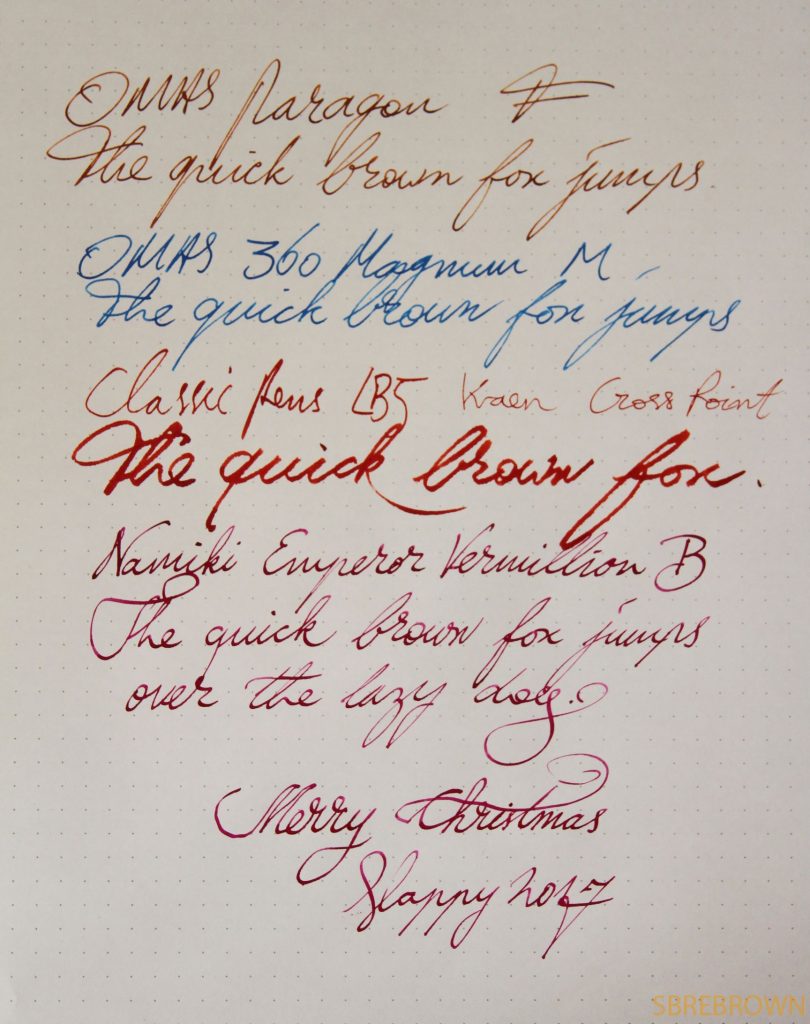 OMAS Paragon F
The quick brown fox jumps
OMAS 360 Magnum M
The quick brown fox jumps
Classic Pens LB5 Kraen Cross Point
The quick brown fox.
Namiki Emperor Vermillion B
The quick brown fox jumps
over the lazy dog.
Merry Christmas
Slappy 2017
SBREBROWN